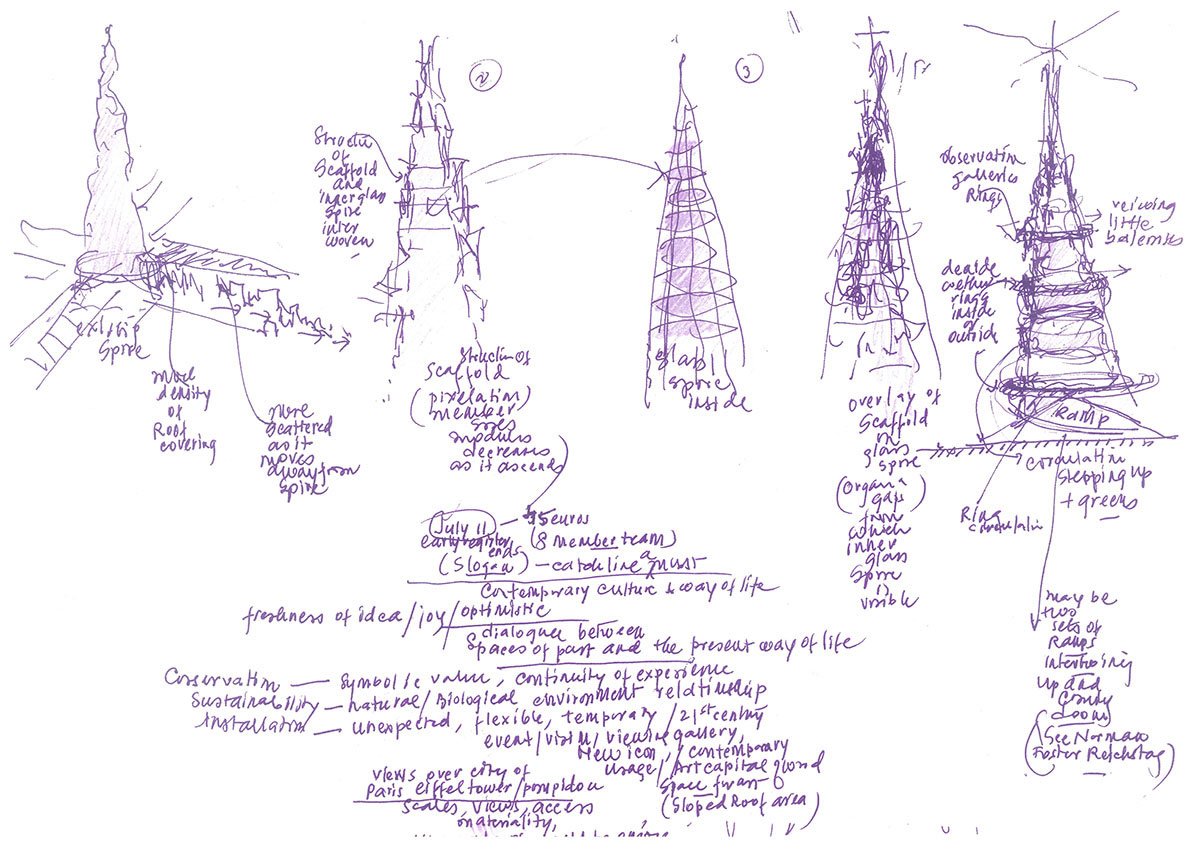 2
3
Structu
of
scaffold
and
inner glass
spire
inter
woven
existip
spire
more
density
of
Roof
covering
more
scattered
as it
moves
away from
spire
structure of
scaffold
(pixelation)
member
sizes
modules
decreases
as it ascends
glass
spire
inside
overlay of
scaffold
on
glass
spire
(organic
gaps)
from
which
inner
glass
spire
is
visible
observation
galleries
Rings
veiwing
little
decide
wether
rings
inside
or
outside
Ramp
stepping up
+ greens
Ring
may be
two
sets of
Ramps
intertwining
up and
down
(See Norman
Foster Reichstag)
July 11 — 35 euros
early register ends (8 member team)
(Slogan) — catch line a must
contemporary culture & way of life
freshness of idea / joy / optimistic
dialogue between
spaces of past and the present way of life
Conservation — symbolic value, continuity of experience
Sustainability — natural / Biological environment relationship
Installation — unexpected, flexible, temporary / 21st century
event / visit / viewing gallery,
New icon, / contemporary
usage / Art capital
views over city of
Paris eiffel tower / pompidou
Space
(Sloped Roof area)
scales, views, access
materiality,